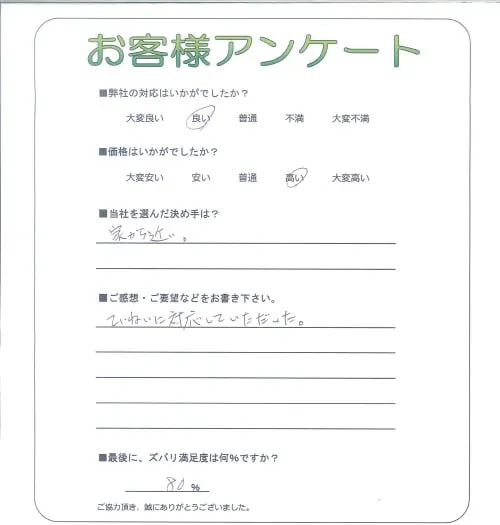 お客様アンケート
■弊社の対応はいかがでしたか？
大変良い 良い 普通 不満 大変不満
■価格はいかがでしたか？
大変安い 安い 普通 高い 大変高い
■当社を選んだ決め手は？
家から近い。
■ご感想・ご要望などをお書き下さい。
ていねいに対応していただいた。
■最後に、ズバリ満足度は何％ですか？
80 %
ご協力頂き、誠にありがとうございました。